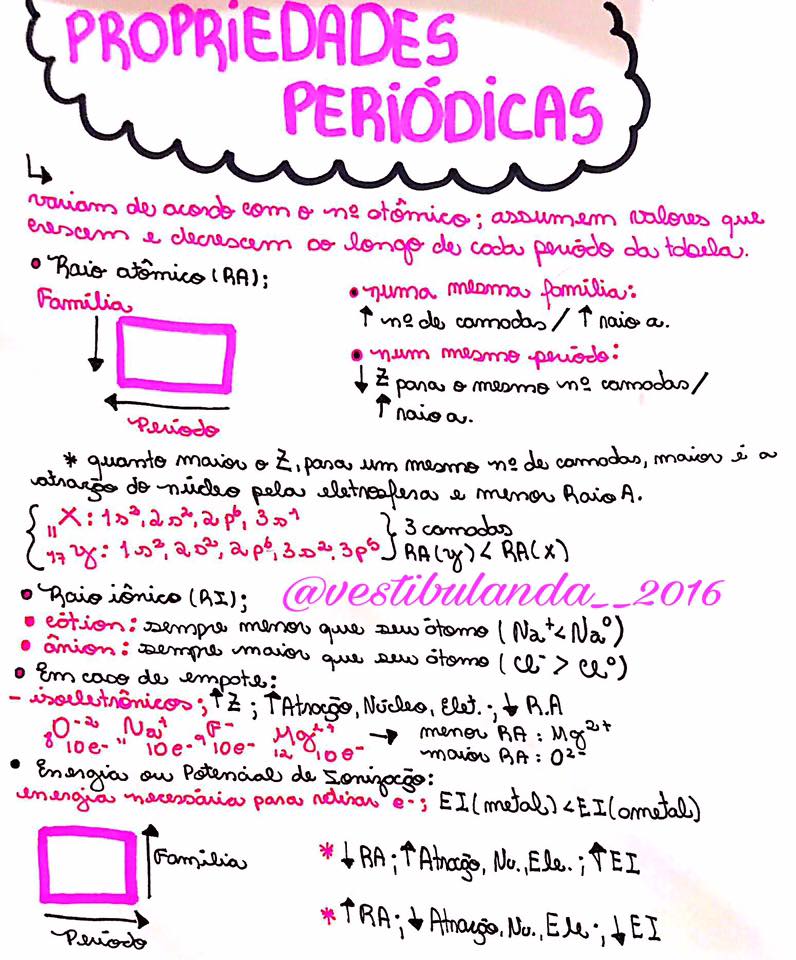 PROPRIEDADES
PERIÓDICAS
↳
variam de acordo com o nº atômico; assumem valores que
crescem e decrescem ao longo de cada período da tabela.
• Raio atômico (RA);
Família
↓
←
Período
• numa mesma família:
↑ nº de camadas / ↑ raio a.
• num mesmo período:
↓ Z para o mesmo nº camadas /
↑ raio a.
* quanto maior o Z, para um mesmo nº de camadas, maior é a
atração do núcleo pela eletrosfera e menor Raio A.
{ ₁₁X: 1s², 2s², 2p⁶, 3s¹ } 3 camadas
₁₇y: 1s², 2s², 2p⁶, 3s², 3p⁵ RA(y) < RA(x)
• Raio iônico (RI);
@vestibulanda__2016
• cátion: sempre menor que seu átomo (Na⁺ < Na⁰)
• ânion: sempre maior que seu átomo (Cl⁻ > Cl⁰)
• Em caso de empate:
- isoeletrônicos; ↑Z; ↑Atração, Núcleo, Elet.; ↓R.A
₈O⁻² ₁₁Na⁺ ₉F⁻ ₁₂Mg²⁺ → menor RA: Mg²⁺
10e⁻ 10e⁻ 10e⁻ 10e⁻ maior RA: O²⁻
• Energia ou Potencial de Ionização:
energia necessária para retirar e⁻; EI(metal) < EI(ametal)
↑ Família
→
Período
* ↓RA; ↑Atração, Nu., Ele.; ↑EI
* ↑RA; ↓Atração, Nu., Ele.; ↓EI